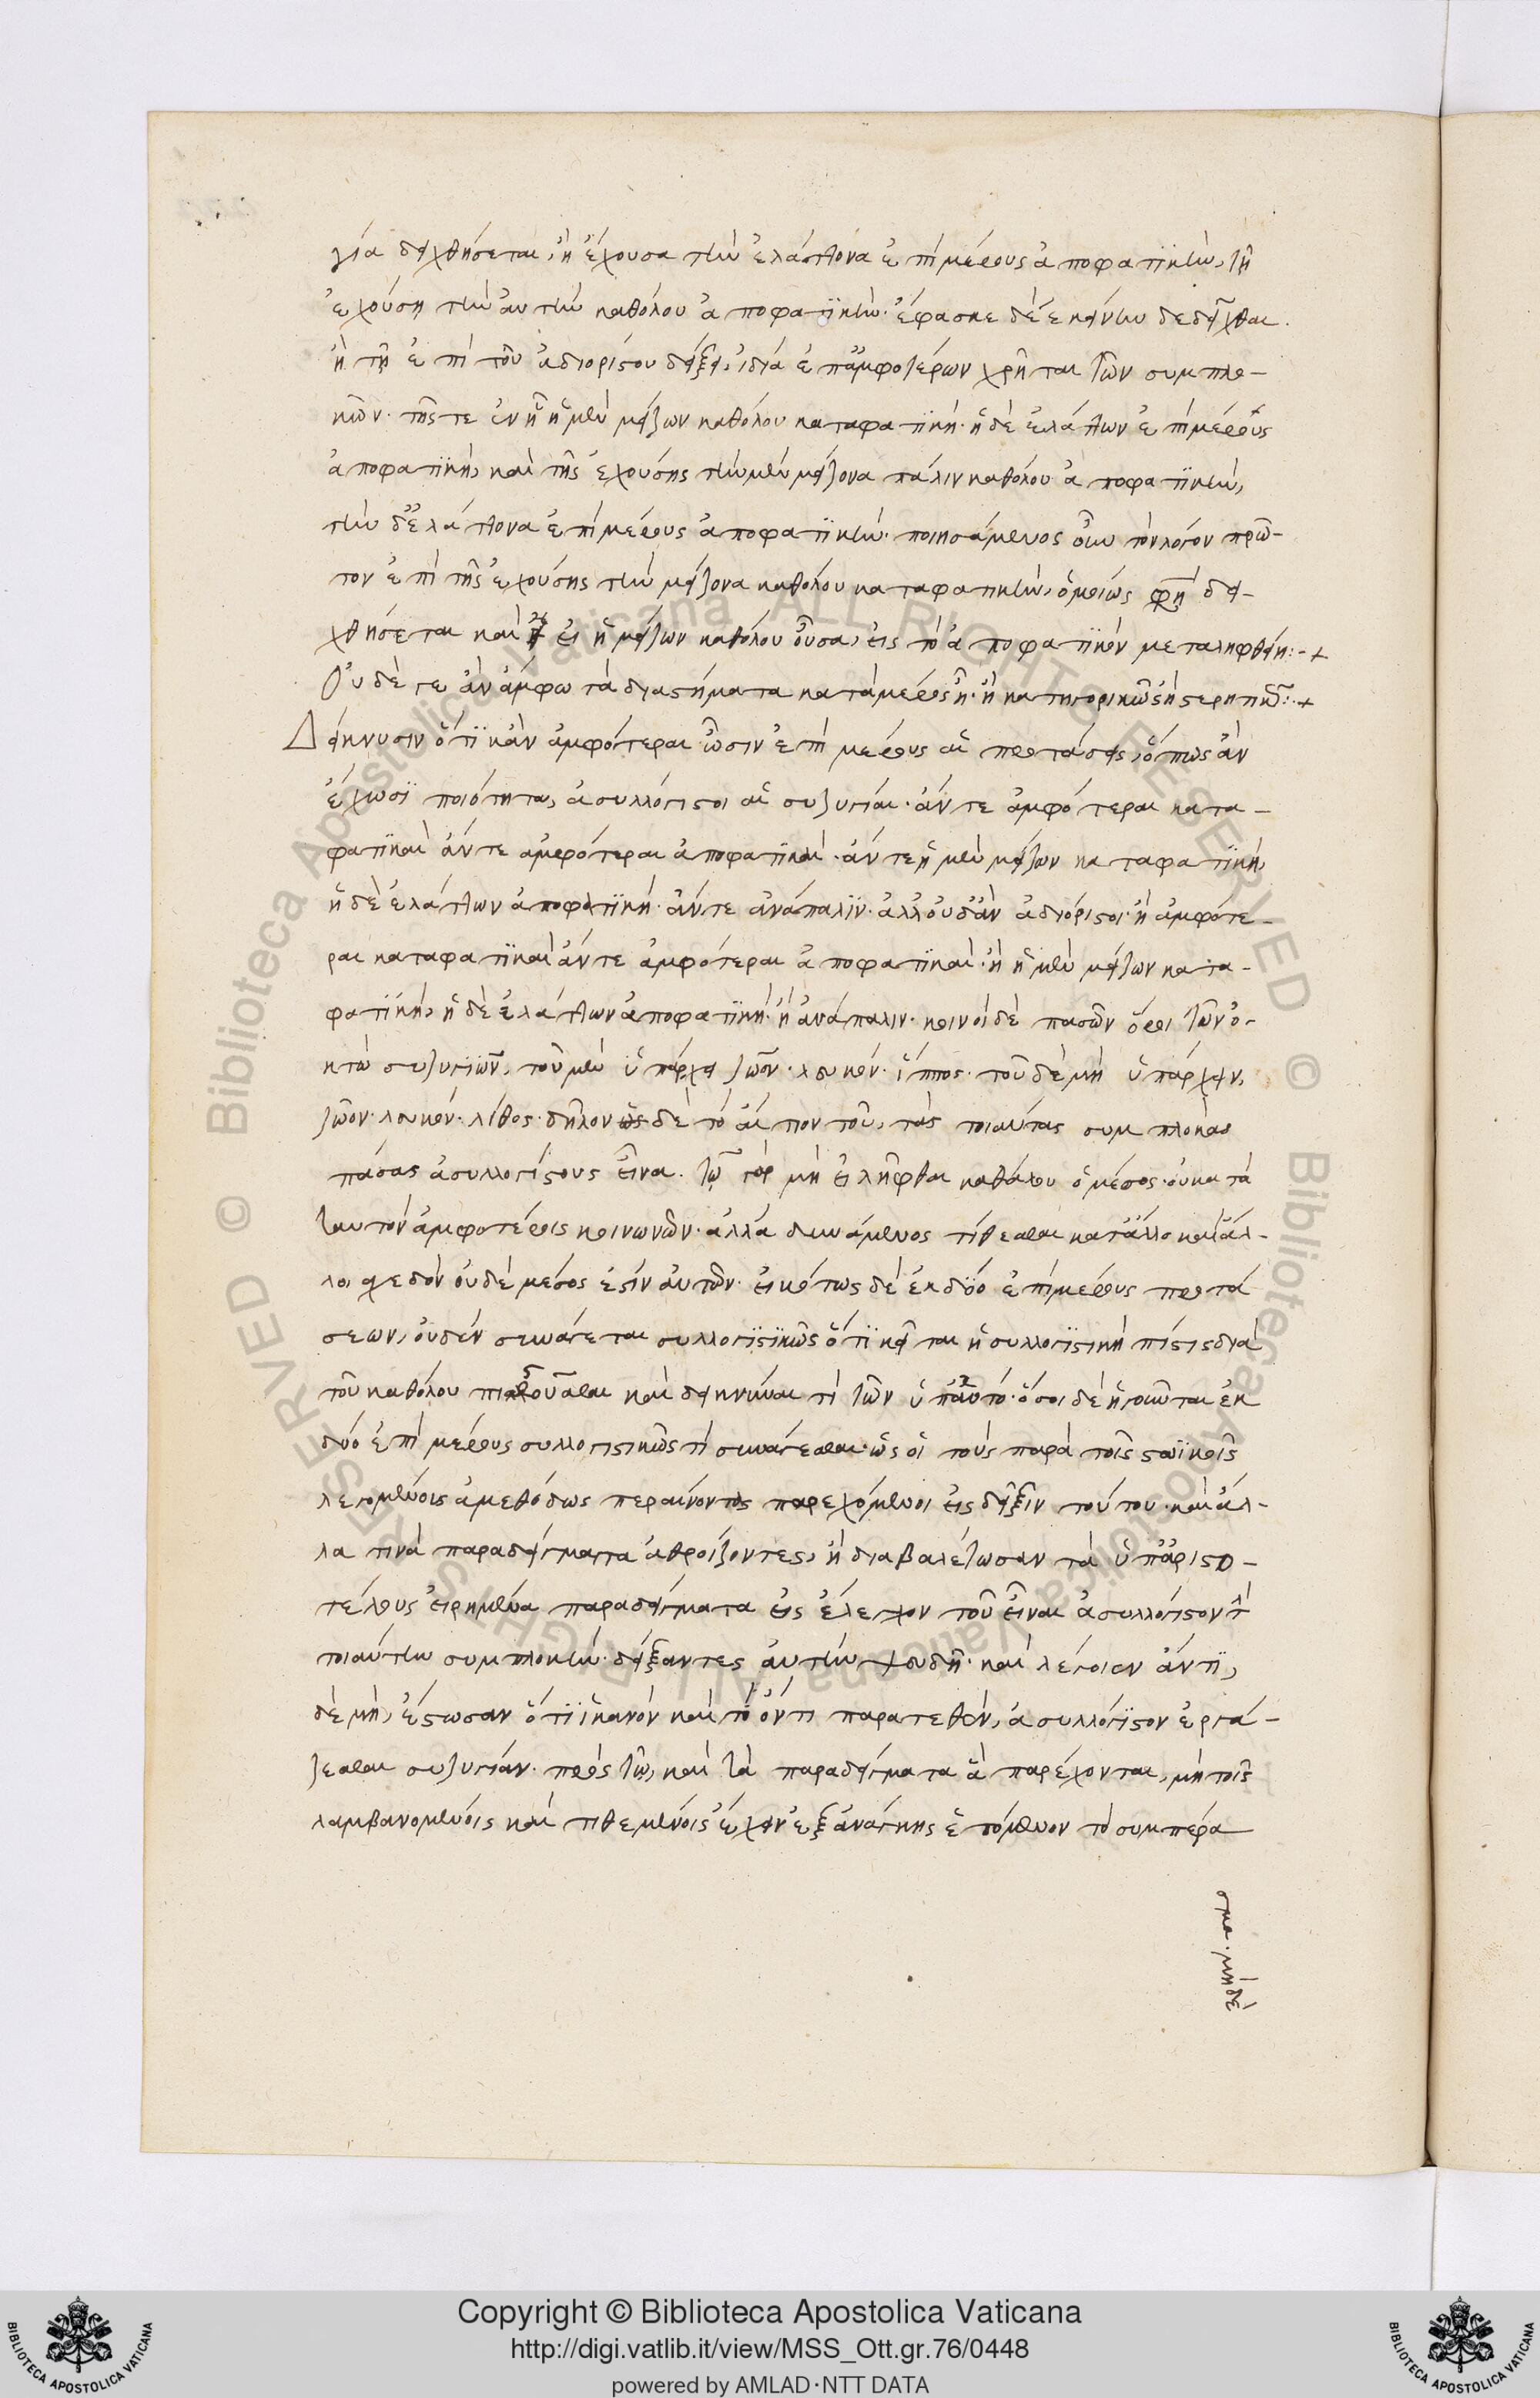 γία δειχθήσεται, ἡ ἔχουσα τὴν ἐλάττονα ἐπιμέρους ἀποφατικὴν, τῇ
ἐχούσῃ τὴν αὐτὴν καθόλου ἀποφατικήν. ἔφασκε δὲ ἐκείνην δεδεῖχθαι.
ἢ τῇ ἐπὶ τοῦ ἀδιορίστου δείξει, ἰδία ἐπ' ἀμφοτέρων χρῆται τῶν συμπλο-
κῶν. τῆς τε ἐν ᾗ ἡ μὲν μείζων καθόλου καταφατικὴ. ἡ δὲ ἐλάττων ἐπιμέρους
ἀποφατικὴ, καὶ τῆς ἐχούσης τὴν μὲν μείζονα πάλιν καθόλου ἀποφατικὴν,
τὴν δ' ἐλάττονα ἐπιμέρους ἀποφατικήν. ποιησάμενος οὖν τὸν λόγον πρῶ-
τον ἐπὶ τῆς ἐχούσης τὴν μείζονα καθόλου καταφατικὴν, ὁμοίως φησὶ δει-
χθήσεται καὶ εἰ ἡ μείζων καθόλου οὖσα, εἰς τὸ ἀποφατικὸν μεταληφθείη:-+
Οὐδέ γε ἂν ἄμφω τὰ διαστήματα κατὰ μέρος ᾖ. ἢ κατηγορικῶς ἢ στερητικῶς:-+
Δείκνυσιν ὅτι κἂν ἀμφότεραι ὦσιν ἐπὶ μέρους αἱ προτάσεις, ὅπως ἂν
ἔχωσι ποιότητα, ἀσυλλόγιστοι αἱ συζυγίαι. ἄν τε ἀμφότεραι κατα-
φατικαὶ ἄν τε ἀμφότεραι ἀποφατικαὶ. ἄν τε ἡ μὲν μείζων καταφατικὴ,
ἡ δὲ ἐλάττων ἀποφατικὴ. ἄν τε ἀνάπαλιν. ἀλλ' οὐδ' ἂν ἀδιόριστοι. ἢ ἀμφότε-
ραι καταφατικαὶ ἄν τε ἀμφότεραι ἀποφατικαὶ. ἢ ἡ μὲν μείζων κατα-
φατικὴ, ἡ δὲ ἐλάττων ἀποφατικὴ. ἢ ἀνάπαλιν. κοινοὶ δὲ πασῶν ὅροι τῶν ὀ-
κτὼ συζυγιῶν, τοῦ μὲν ὑπάρχειν ζῶον. λευκόν. ἵππος. τοῦ δὲ μὴ ὑπάρχειν,
ζῶον. λευκόν. λίθος. δῆλον δὲ τὸ αἴτιον τοῦ, τὰς τοιαύτας συμπλοκὰς
πάσας ἀσυλλογίστους εἶναι. τῷ γὰρ μὴ εἰλῆφθαι καθόλου ὁ μέσος. οὐ κατὰ
ταυτὸν ἀμφοτέροις κοινωνῶν. ἀλλὰ δυνάμενος τίθεσθαι κατ' ἄλλο καὶ ἄλ-
λο, σχεδὸν οὐδὲ μέσος ἐστὶν αὐτῶν. εἰκότως δὲ ἐκ δύο ἐπιμέρους προτά
σεων, οὐδὲν συνάγεται συλλογιστικῶς ὅτι κεῖται ἡ συλλογιστικὴ πίστις διὰ
τοῦ καθόλου πιστοῦσθαι καὶ δεικνύναι τὶ τῶν ὑπ' αὐτό. ὅσοι δὲ ἡγοῦνται ἐκ
δύο ἐπὶ μέρους συλλογιστικῶς τὶ συνάγεσθαι. ὡς οἱ τοὺς παρὰ τοῖς στωϊκοῖς
λεγομένοις ἀμεθόδως περαίνοντας παρεχόμενοι εἰς δεῖξιν τούτου. καὶ ἄλ-
λα τινὰ παραδείγματα ἀθροίζοντες, ἢ διαβαλέτωσαν τὰ ὑπ' ἀριστο-
τέλους εἰρημένα παραδείγματα εἰς ἔλεγχον τοῦ εἶναι ἀσυλλόγιστον τὴν
τοιαύτην συμπλοκὴν. δείξαντες αὐτὴν ψευδῆ. καὶ λέγοιεν ἄν τι,
δὲ μὴ, ἔστωσαν ὅτι ἱκανὸν καὶ τὸ ὄντι παρατεθὲν, ἀσυλλόγιστον ἐργά-
ζεσθαι συζυγίαν. πρὸς τῷ, καὶ τὰ παραδείγματα ἃ παρέχονται, μὴ τοῖς
λαμβανομένοις καὶ τιθεμένοις ἔχειν ἐξ ἀνάγκης ἑπόμενον τὸ συμπέρα
σμα. μηδὲ